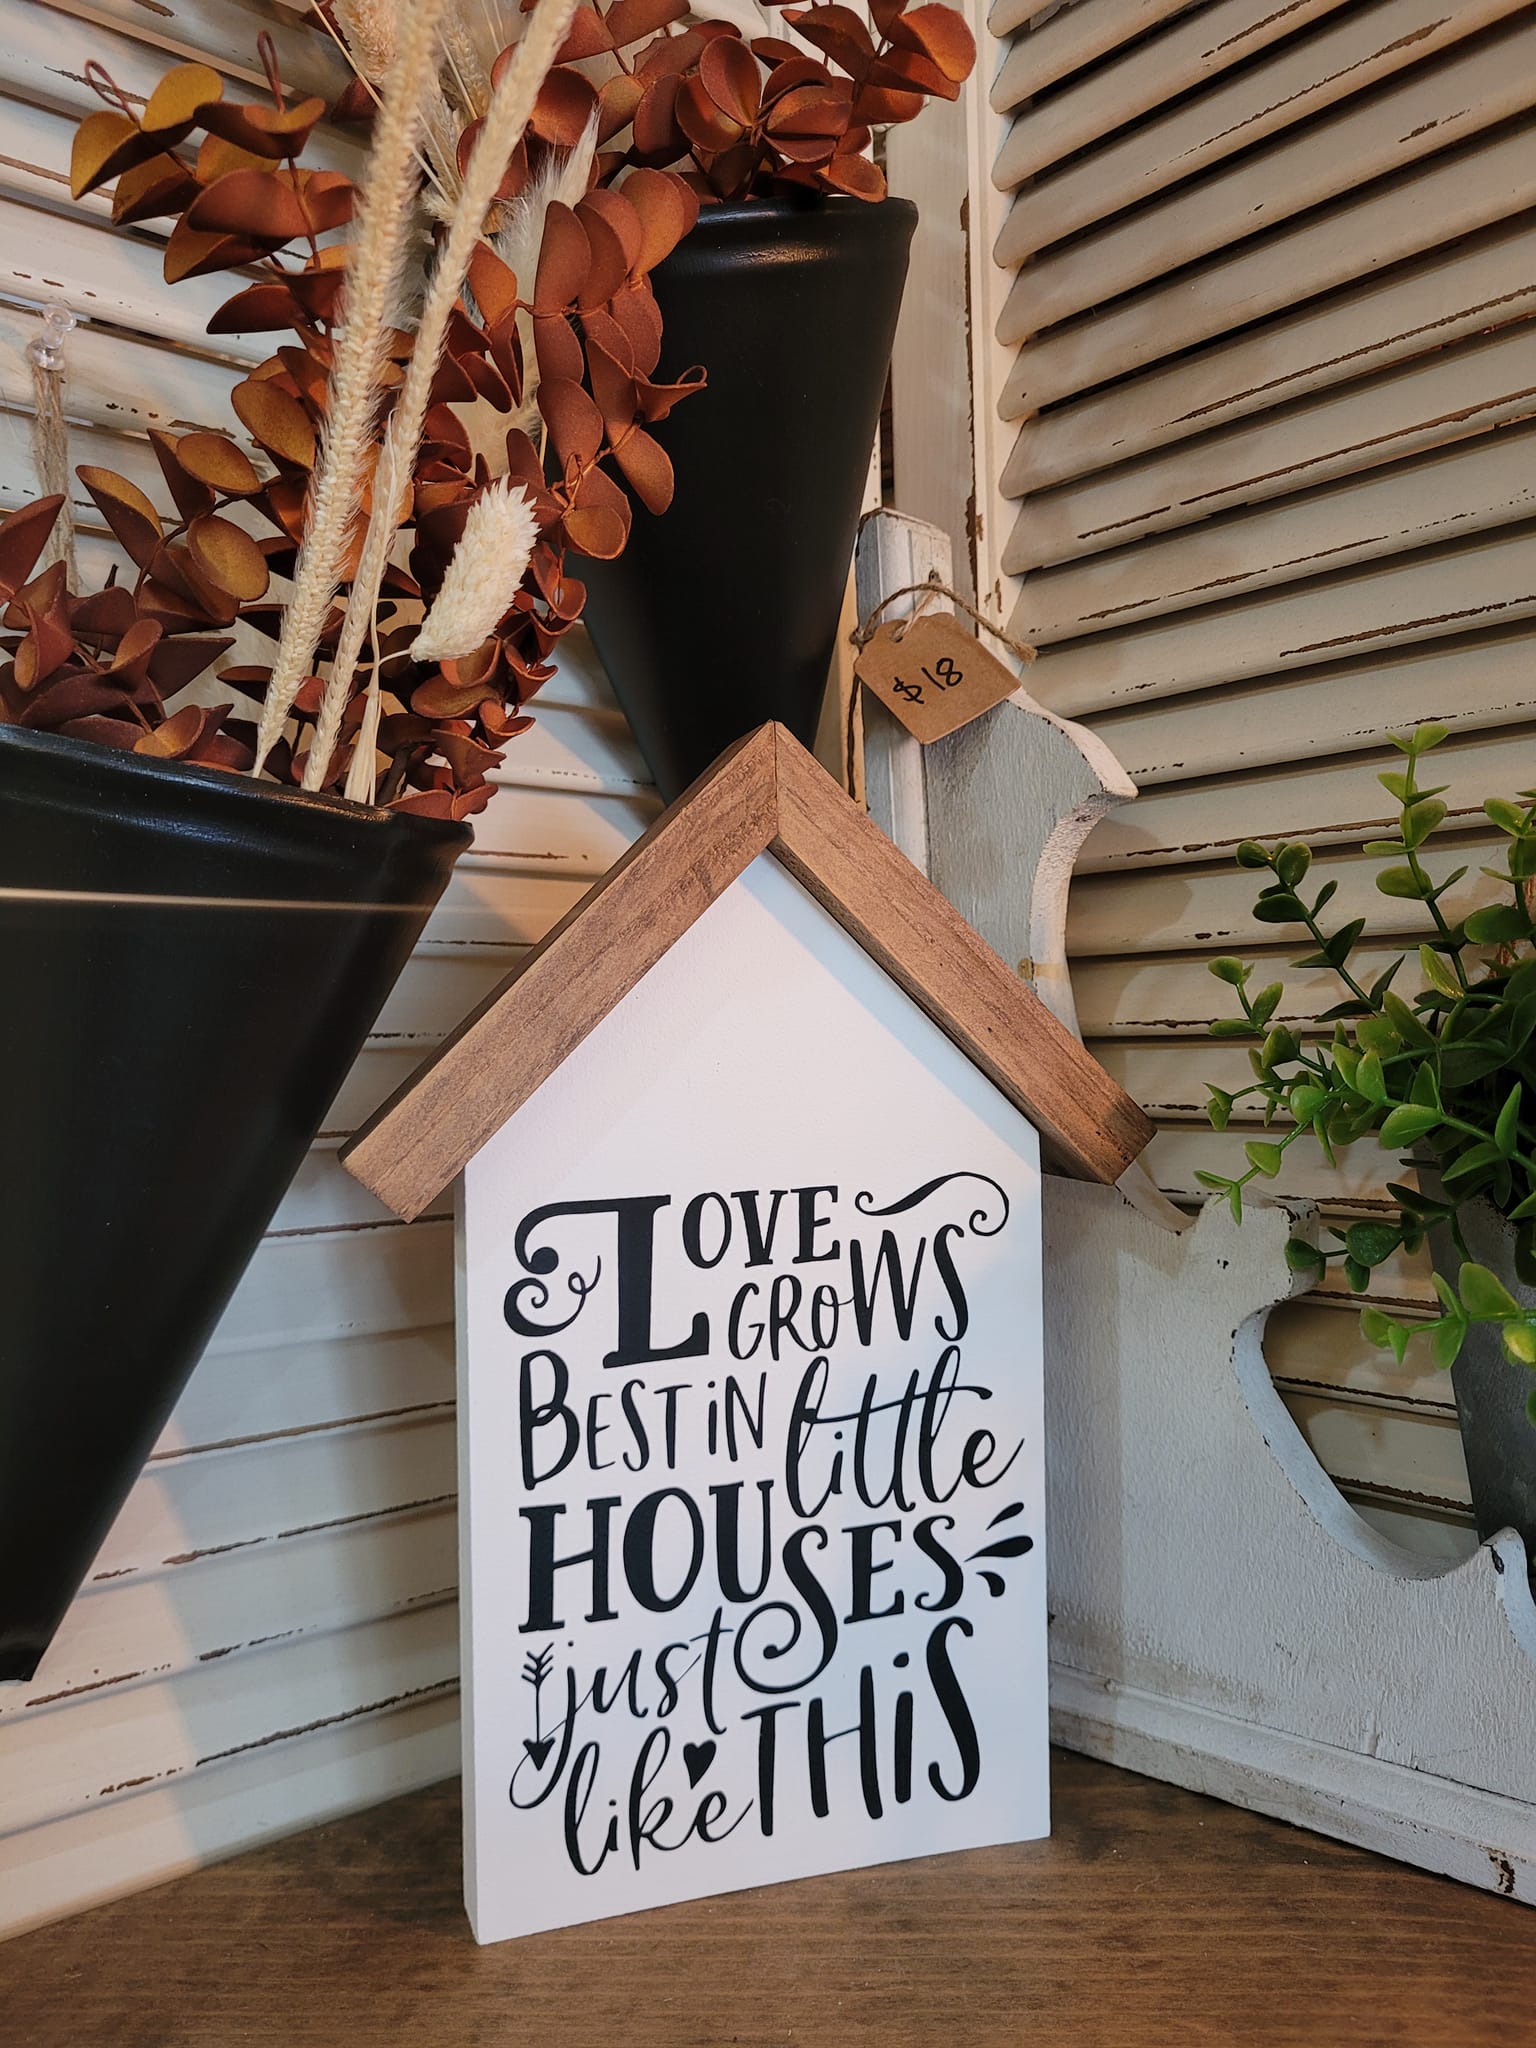 $18
LOVE
GROWS
BEST iN little
HOUSES
just
like THiS